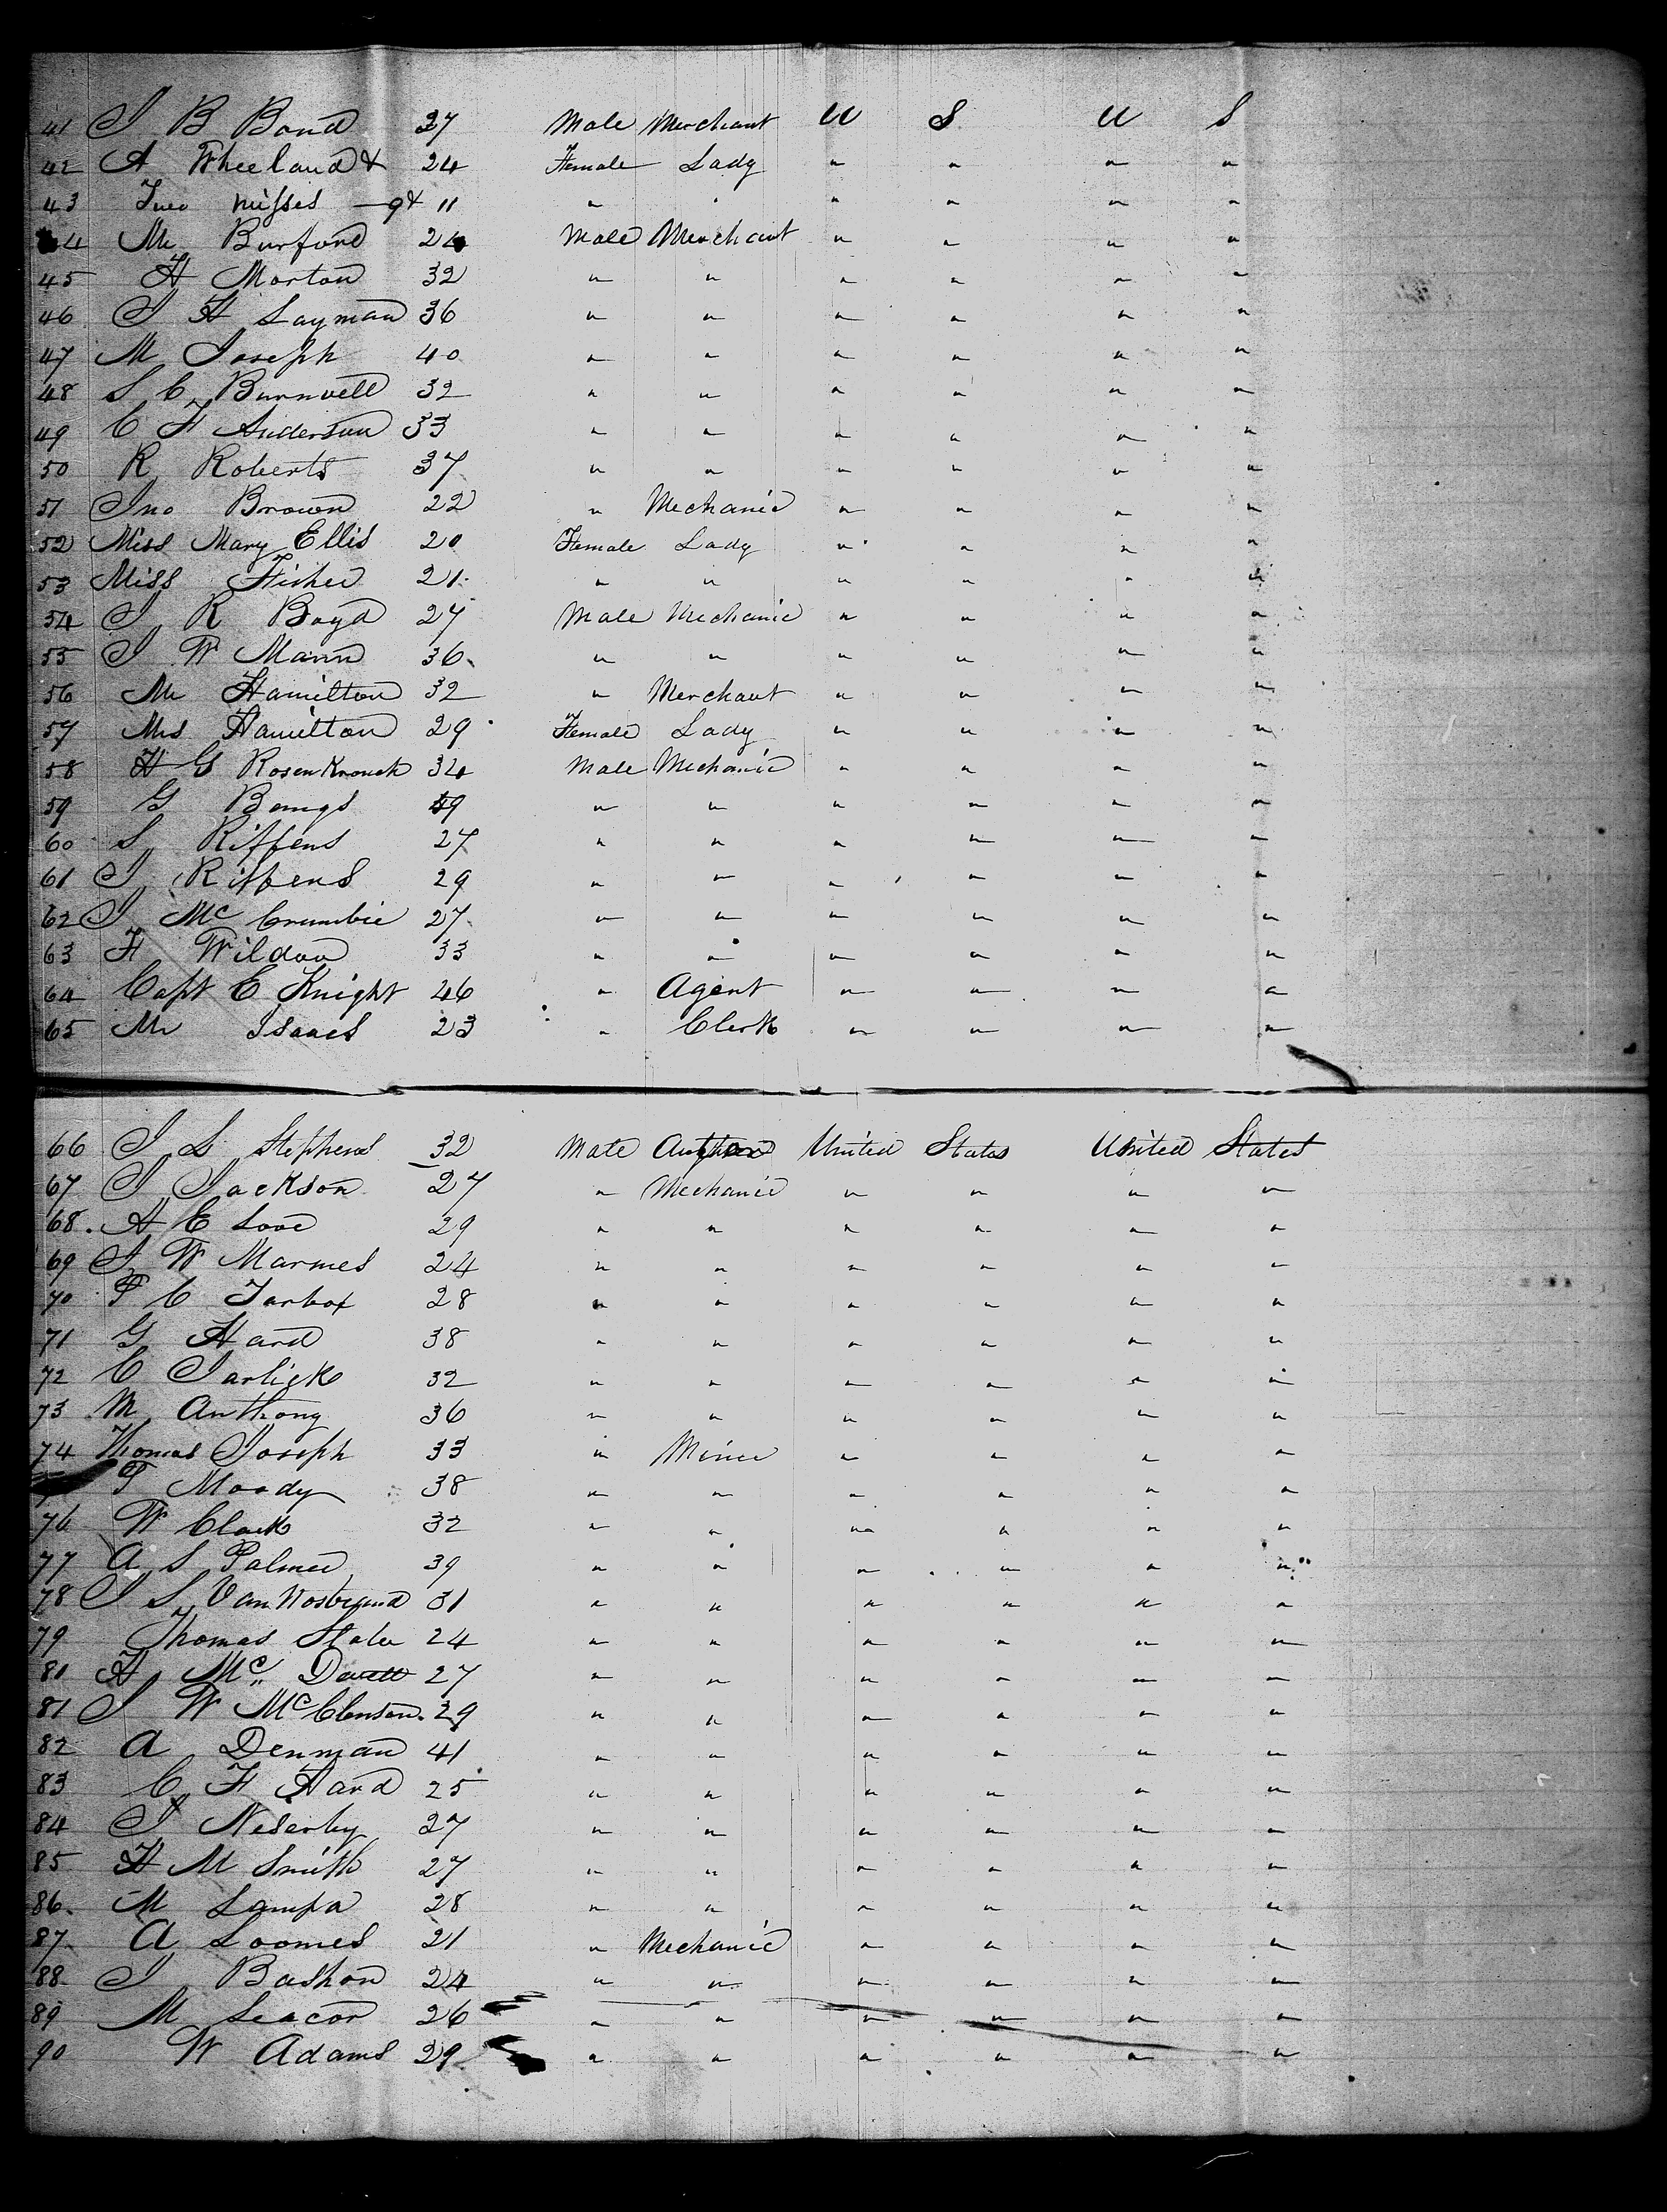 41 J B Bond 27 Male Merchant U S U S
42 A Wheeland & 24 Female Lady " " " "
43 Two misses — 9 & 11 " " " " " "
44 Mr Burford 24 Male Merchant " " " "
45 H Morton 32 " " " " " "
46 J H Layman 36 " " " " " "
47 M Joseph 40 " " " " " "
48 S C Burnvell 32 " " " " " "
49 C F Anderson 33 " " " " " "
50 R Roberts 37 " " " " " "
51 Jno Brown 22 " Mechanic " " " "
52 Miss Mary Ellis 20 Female Lady " " " "
53 Miss Fisher 21 " " " " " "
54 J R Boyd 27 Male Mechanic " " " "
55 J W Mann 36 " " " " " "
56 Mr Hamilton 32 " Merchant " " " "
57 Mrs Hamilton 29 Female Lady " " " "
58 H G Rosenkronck 34 Male Mechanic " " " "
59 G Bangs 49 " " " " " "
60 S Riffens 27 " " " " " "
61 J Riffens 29 " " " " " "
62 J McCrumbie 27 " " " " " "
63 F Wildon 33 " " " " " "
64 Capt E Knight 46 " Agent " " " "
65 Mr Isaacs 23 " Clerk " " " "
66 J L Stephens 32 Male Author United States United States
67 J Jackson 27 " Mechanic " " " "
68 A E Love 29 " " " " " "
69 J W Marmes 24 " " " " " "
70 P C Tarbox 28 " " " " " "
71 G Hard 38 " " " " " "
72 C Jarlick 32 " " " " " "
73 M Anthony 36 " " " " " "
74 Thomas Joseph 33 " Miner " " " "
P Moody 38 " " " " " "
76 W Clark 32 " " " " " "
77 A S Palmer 39 " " " " " "
78 J S VanNostrand 31 " " " " " "
79 Thomas Slater 24 " " " " " "
80 H Mc 27 " " " " " "
81 J W McClenson 29 " " " " " "
82 A Denman 41 " " " " " "
83 C F Hard 25 " " " " " "
84 J Neserby 27 " " " " " "
85 H M Smith 27 " " " " " "
86 M Lampa 28 " " " " " "
87 A Loomes 21 " Mechanic " " " "
88 J Bashon 24 " " " " " "
89 M Seacor 26 " " " " " "
90 W Adams 29 " " " " " "